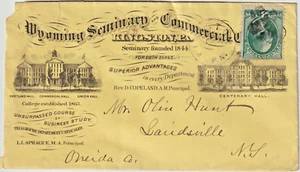 Wyoming Seminary and Commercial C
KINGSTON, PA.
Seminary founded 1844
FOR BOTH SEXES.
SUPERIOR ADVANTAGES
in every Department
Rev. D. COPELAND, A.M. Principal.
COMMERCIAL HALL. UNION HALL.
CENTENARY HALL.
College established 1863.
UNSURPASSED COURSE
OF BUSINESS STUDY
L.L. SPRAGUE, M.A. Principal
Mon. Olin Hunt
Lairdsville
Oneida Co. N.Y.